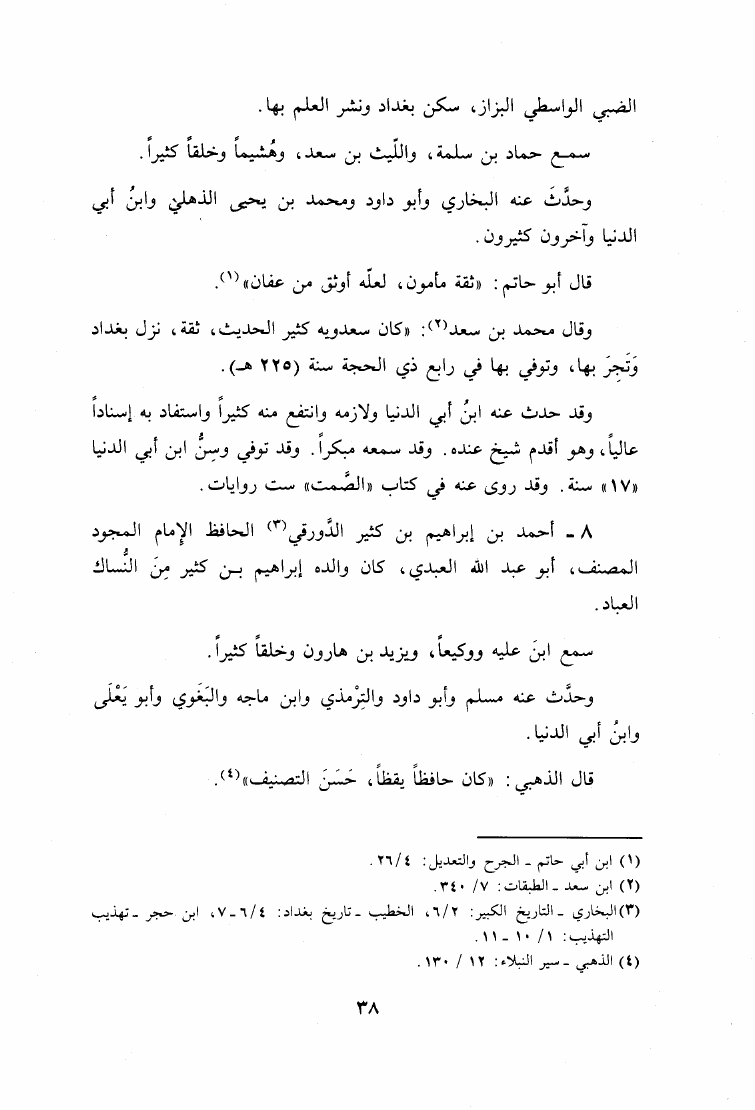 الضبي الواسطي البزاز، سكن بغداد ونشر العلم بها.
سمع حماد بن سلمة، واللّيث بن سعد، وهُشيماً وخلقاً كثيراً.
وحدَّثَ عنه البخاري وأبو داود ومحمد بن يحيى الذهلي وابنُ أبي
الدنيا وآخرون كثيرون.
قال أبو حاتم: «ثقة مأمون، لعلّه أوثق من عفان»(١).
وقال محمد بن سعد(٢): «كان سعدويه كثير الحديث، ثقة، نزل بغداد
وَتَجِرَ بها، وتوفي بها في رابع ذي الحجة سنة (٢٢٥ هـ).
وقد حدث عنه ابنُ أبي الدنيا ولازمه وانتفع منه كثيراً واستفاد به إسناداً
عالياً، وهو أقدم شيخ عنده. وقد سمعه مبكراً. وقد توفي وسِنُّ ابن أبي الدنيا
«١٧» سنة. وقد روى عنه في كتاب «الصَّمت» ست روايات.
٨ - أحمد بن إبراهيم بن كثير الدَّورقي(٣) الحافظ الإمام المجود
المصنف، أبو عبد الله العبدي، كان والده إبراهيم بـن كثير مِنَ النُّساك
العباد.
سمع ابنَ عليه ووكيعاً، ويزيد بن هارون وخلقاً كثيراً.
وحدَّث عنه مسلم وأبو داود والتِرْمذي وابن ماجه والبَغَوي وأبو يَعْلَى
وابنُ أبي الدنيا.
قال الذهبي: «كان حافظاً يقظاً، حَسَنَ التصنيف»(٤).
(١) ابن أبي حاتم - الجرح والتعديل: ٢٦/٤.
(٢) ابن سعد - الطبقات: ٧/ ٣٤٠.
(٣) البخاري - التاريخ الكبير: ٦/٢، الخطيب - تاريخ بغداد: ٦/٤-٧، ابن حجر - تهذيب
التهذيب: ١/ ١٠ - ١١.
(٤) الذهبي - سير النبلاء: ١٢ / ١٣٠.
٣٨